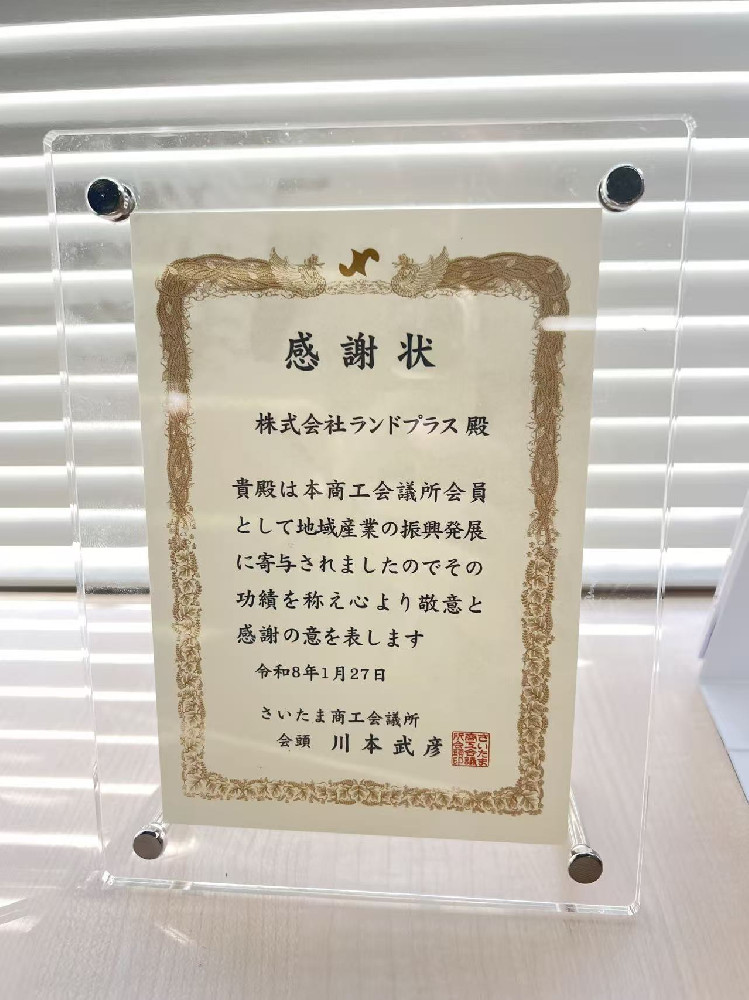 感謝状
株式会社ランドプラス 殿
貴殿は本商工会議所会員
として地域産業の振興発展
に寄与されましたのでその
功績を称え心より敬意と
感謝の意を表します
令和8年1月27日
さいたま商工会議所
会頭 川本武彦
さいたま商工会議所会頭印